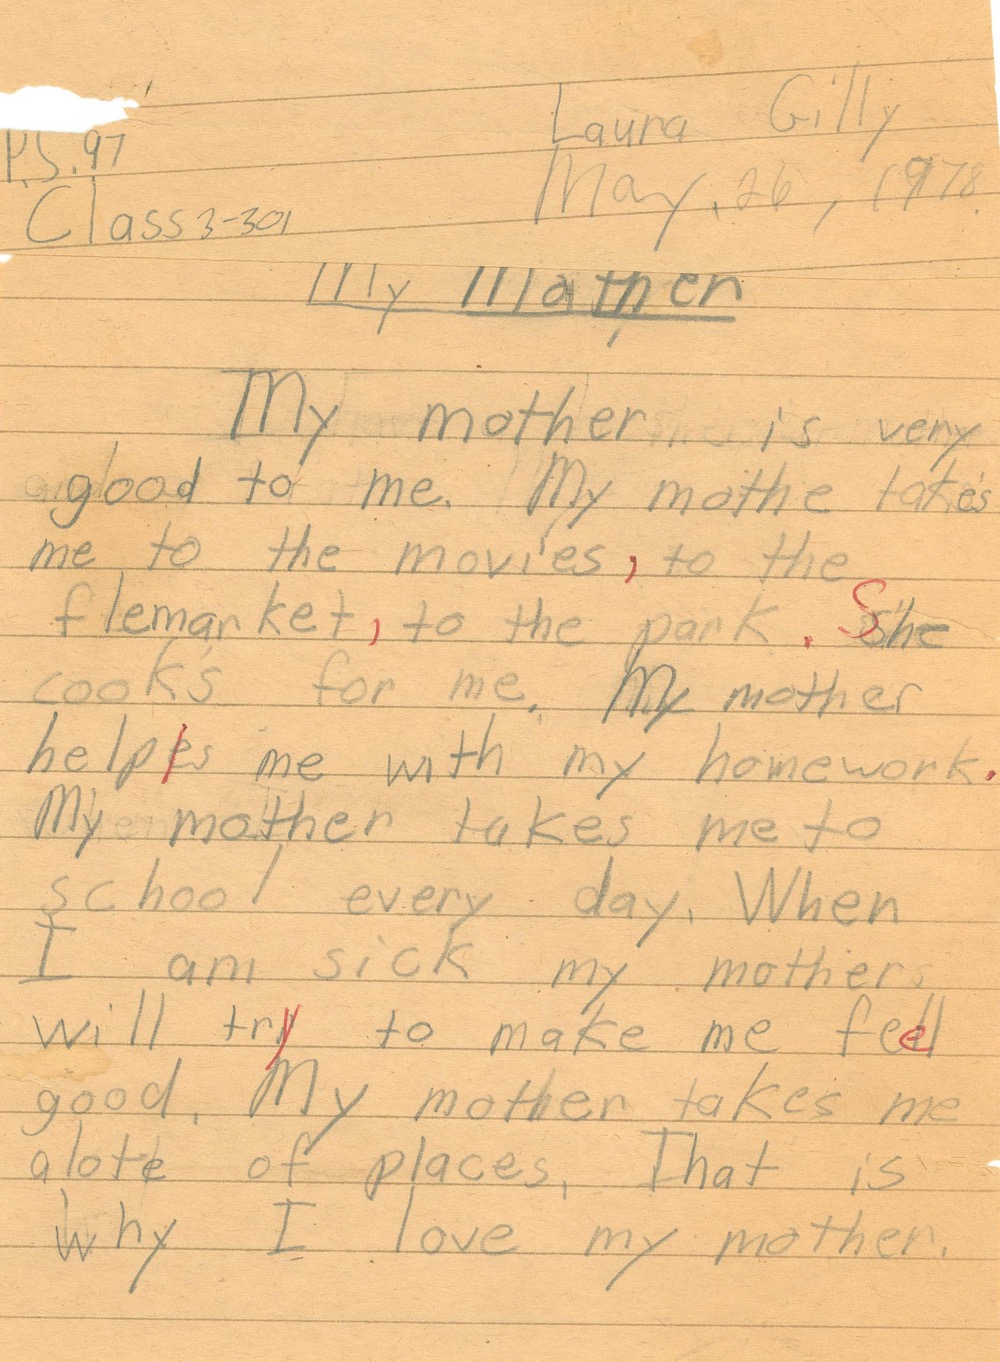 Laura Gilly
P.S. 97
May, 26, 1978.
Class 3-301
My Mother
My mother is very
good to me. My mothe takes
me to the movies, to the
flemarket, to the park. She
cooks for me. My mother
helpes me with my homework.
My mother takes me to
school every day. When
I am sick my mother
will try to make me feel
good. My mother takes me
alote of places. That is
Why I love my mother.